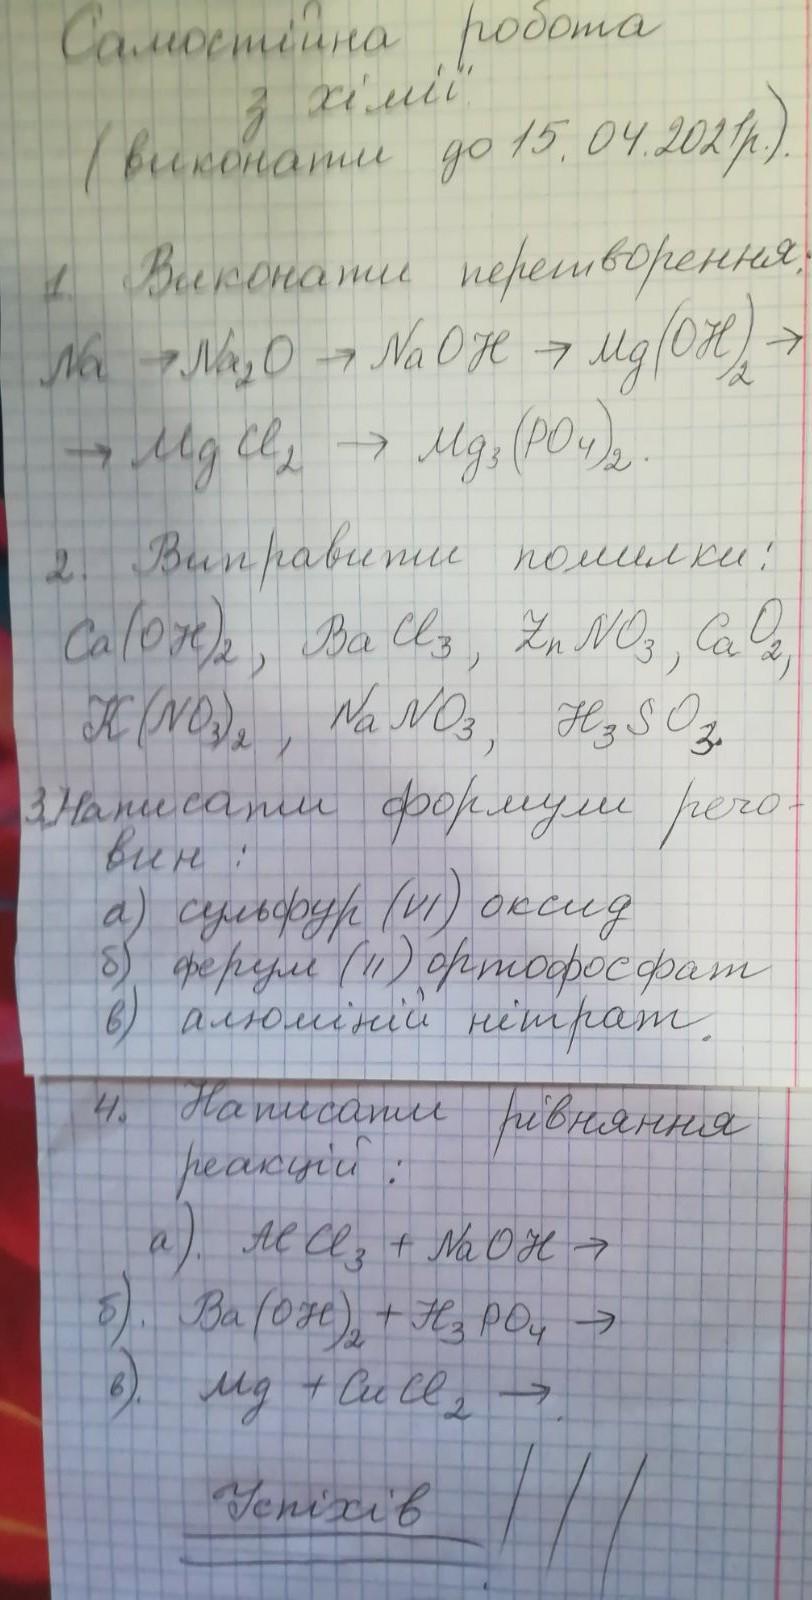 Самостійна робота
з хімії
(виконати до 15.04.2021р.).
1. Виконати перетворення:
Na → Na₂O → NaOH → Mg(OH)₂ →
→ MgCl₂ → Mg₃(PO₄)₂.
2. Виправити помилки:
Ca(OH)₂, BaCl₃, ZnNO₃, CaO₂,
K(NO₃)₂, NaNO₃, H₃SO₃.
3. Написати формули речо-
вин:
а) сульфур (VI) оксид
б) ферум (II) ортофосфат
в) алюміній нітрат.
4. Написати рівняння
реакцій:
а). AlCl₃ + NaOH →
б). Ba(OH)₂ + H₃PO₄ →
в). Mg + CuCl₂ →.
Успіхів !!!